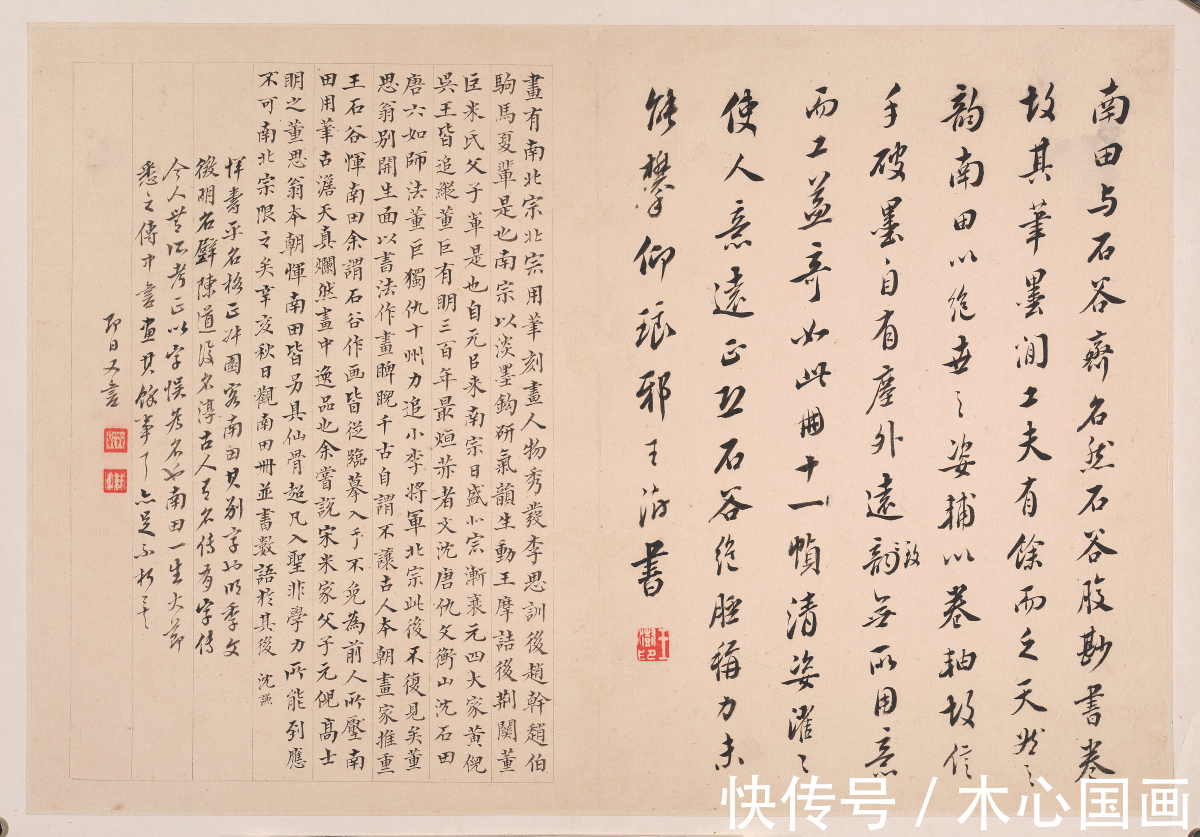 南田与石谷齊名然石谷股尠書卷
故其筆墨間工夫有餘而乏天然之
韵南田以絶世之姿輔以卷軸故信
手破墨自有塵外遠韵無所用意
致
而工益奇如此冊十一幀清姿濯〻
使人意遠正恐石谷絶脛稱力未
能攀仰琅邪王澍書
畫有南北宗北宗用筆刻畫人物秀發李思訓後趙幹趙伯
駒馬夏輩是也南宗以淡墨鈎研氣韻生動王摩詰後荆關董
巨米氏父子輩是也自元已來南宗日盛北宗漸衰元四大家黄倪
吳王皆追縱董巨有明三百年最烜赫者文沈唐仇文衡山沈石田
唐六如師法董巨獨仇十州力追小李將軍北宗此後不復見矣董
思翁別開生面以書法作畫睥睨千古自謂不讓古人本朝畫家推重
王石谷惲南田余謂石谷作画皆從臨摹入手不免為前人所壓南
田用筆古澹天真爛然畫中逸品也余嘗說宋米家父子元倪高士
明之董思翁本朝惲南田皆另具仙骨超凡入聖非學力所能到應
不可南北宗限之矣辛亥秋日觀南田冊並書數語於其後 沈
惲壽平名格正叔園客南田其別字也明季文
徵明名璧陳道復名淳古人有名傳有字傳
今人無所考正以字悮為名也南田一生大節
悉之傳中書畫其餘事了
即日又書
快传号 / 木心国画